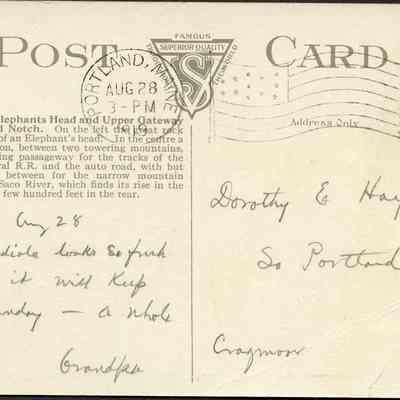 POST CARD
FAMOUS
SUPERIOR QUALITY
VS
PORTLAND, MAINE
AUG 28
3-PM
Elephants Head and Upper Gateway
d Notch. On the left the great rock
of an Elephant's head. In the centre a
on, between two towering mountains,
ing passageway for the tracks of the
ral R.R. and the auto road, with but
between for the narrow mountain
Saco River, which finds its rise in the
few hundred feet in the rear.
Address Only
Aug 28
looks so fresh
it will keep
nday — a whole
Grandpa
Dorothy E Hay
So Portland
Cragmoor